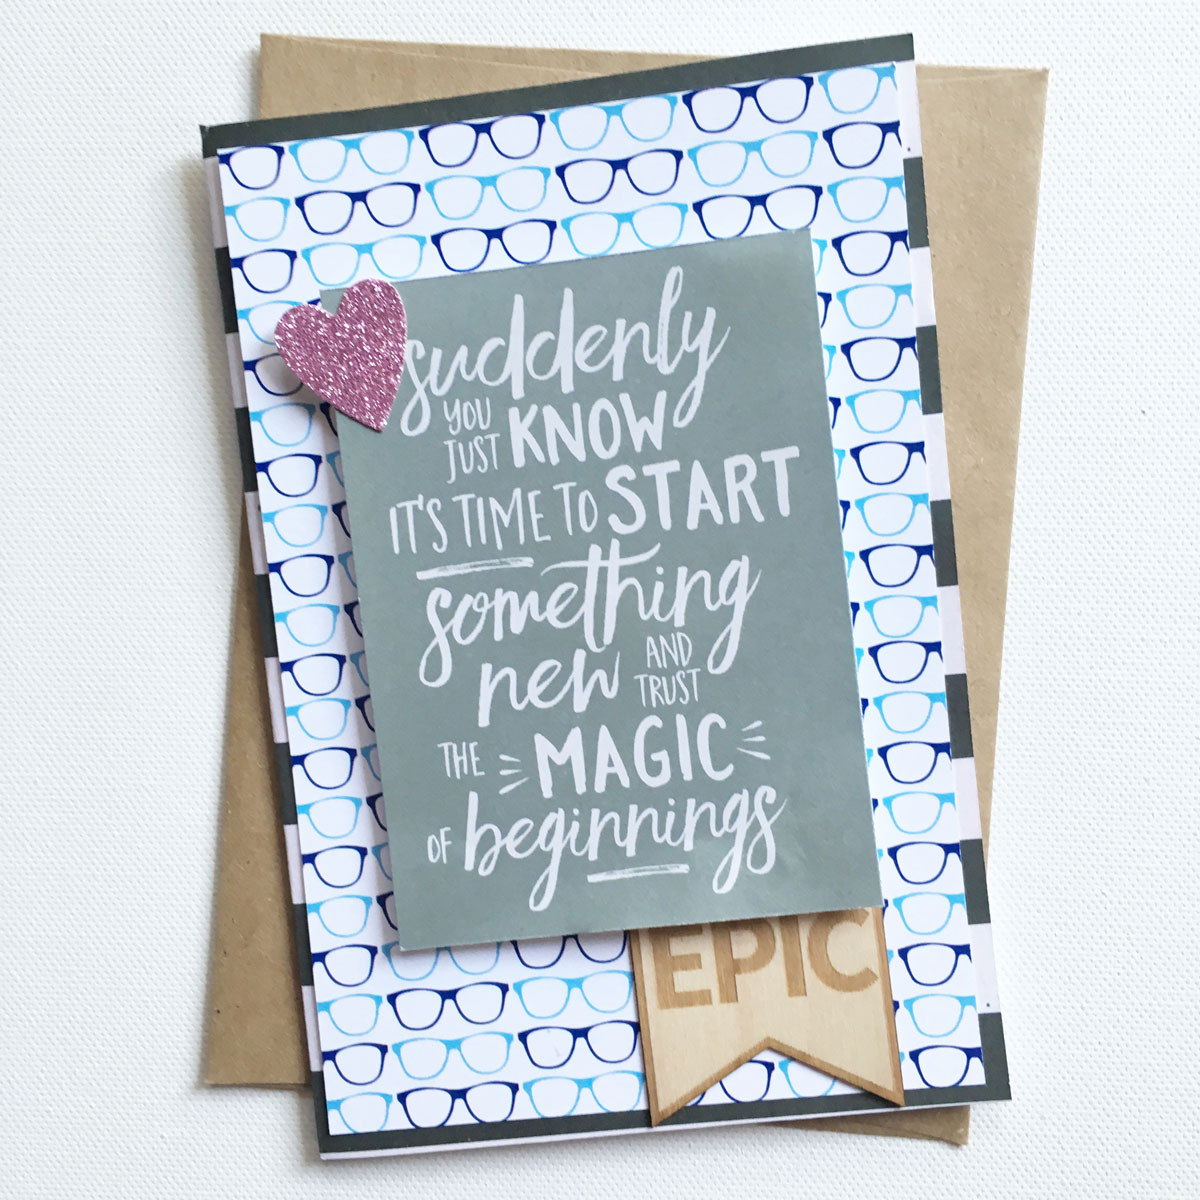 suddenly
YOU
JUST KNOW
IT'S TIME TO START
something
new AND
TRUST
THE MAGIC
OF beginnings
EPIC